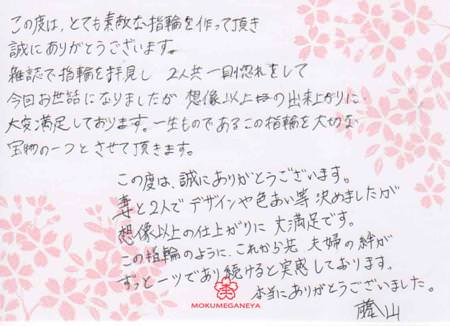 この度は、とても素敵な指輪を作って頂き
誠にありがとうございます。
雑誌で指輪を拝見し 2人共一目惚れをして
今回お世話になりましたが 想像以上の出来上がりに
大変満足しております。一生ものであるこの指輪を大切な
宝物の一つとさせて頂きます。
この度は、誠にありがとうございます。
妻と2人でデザインや色あい等 決めましたが
想像以上の仕上がりに 大満足です。
この指輪のように、これから先 夫婦の絆が
ずっと一ツであり続けると実感しております。
本当にありがとうございました。
山
MOKUMEGANEYA